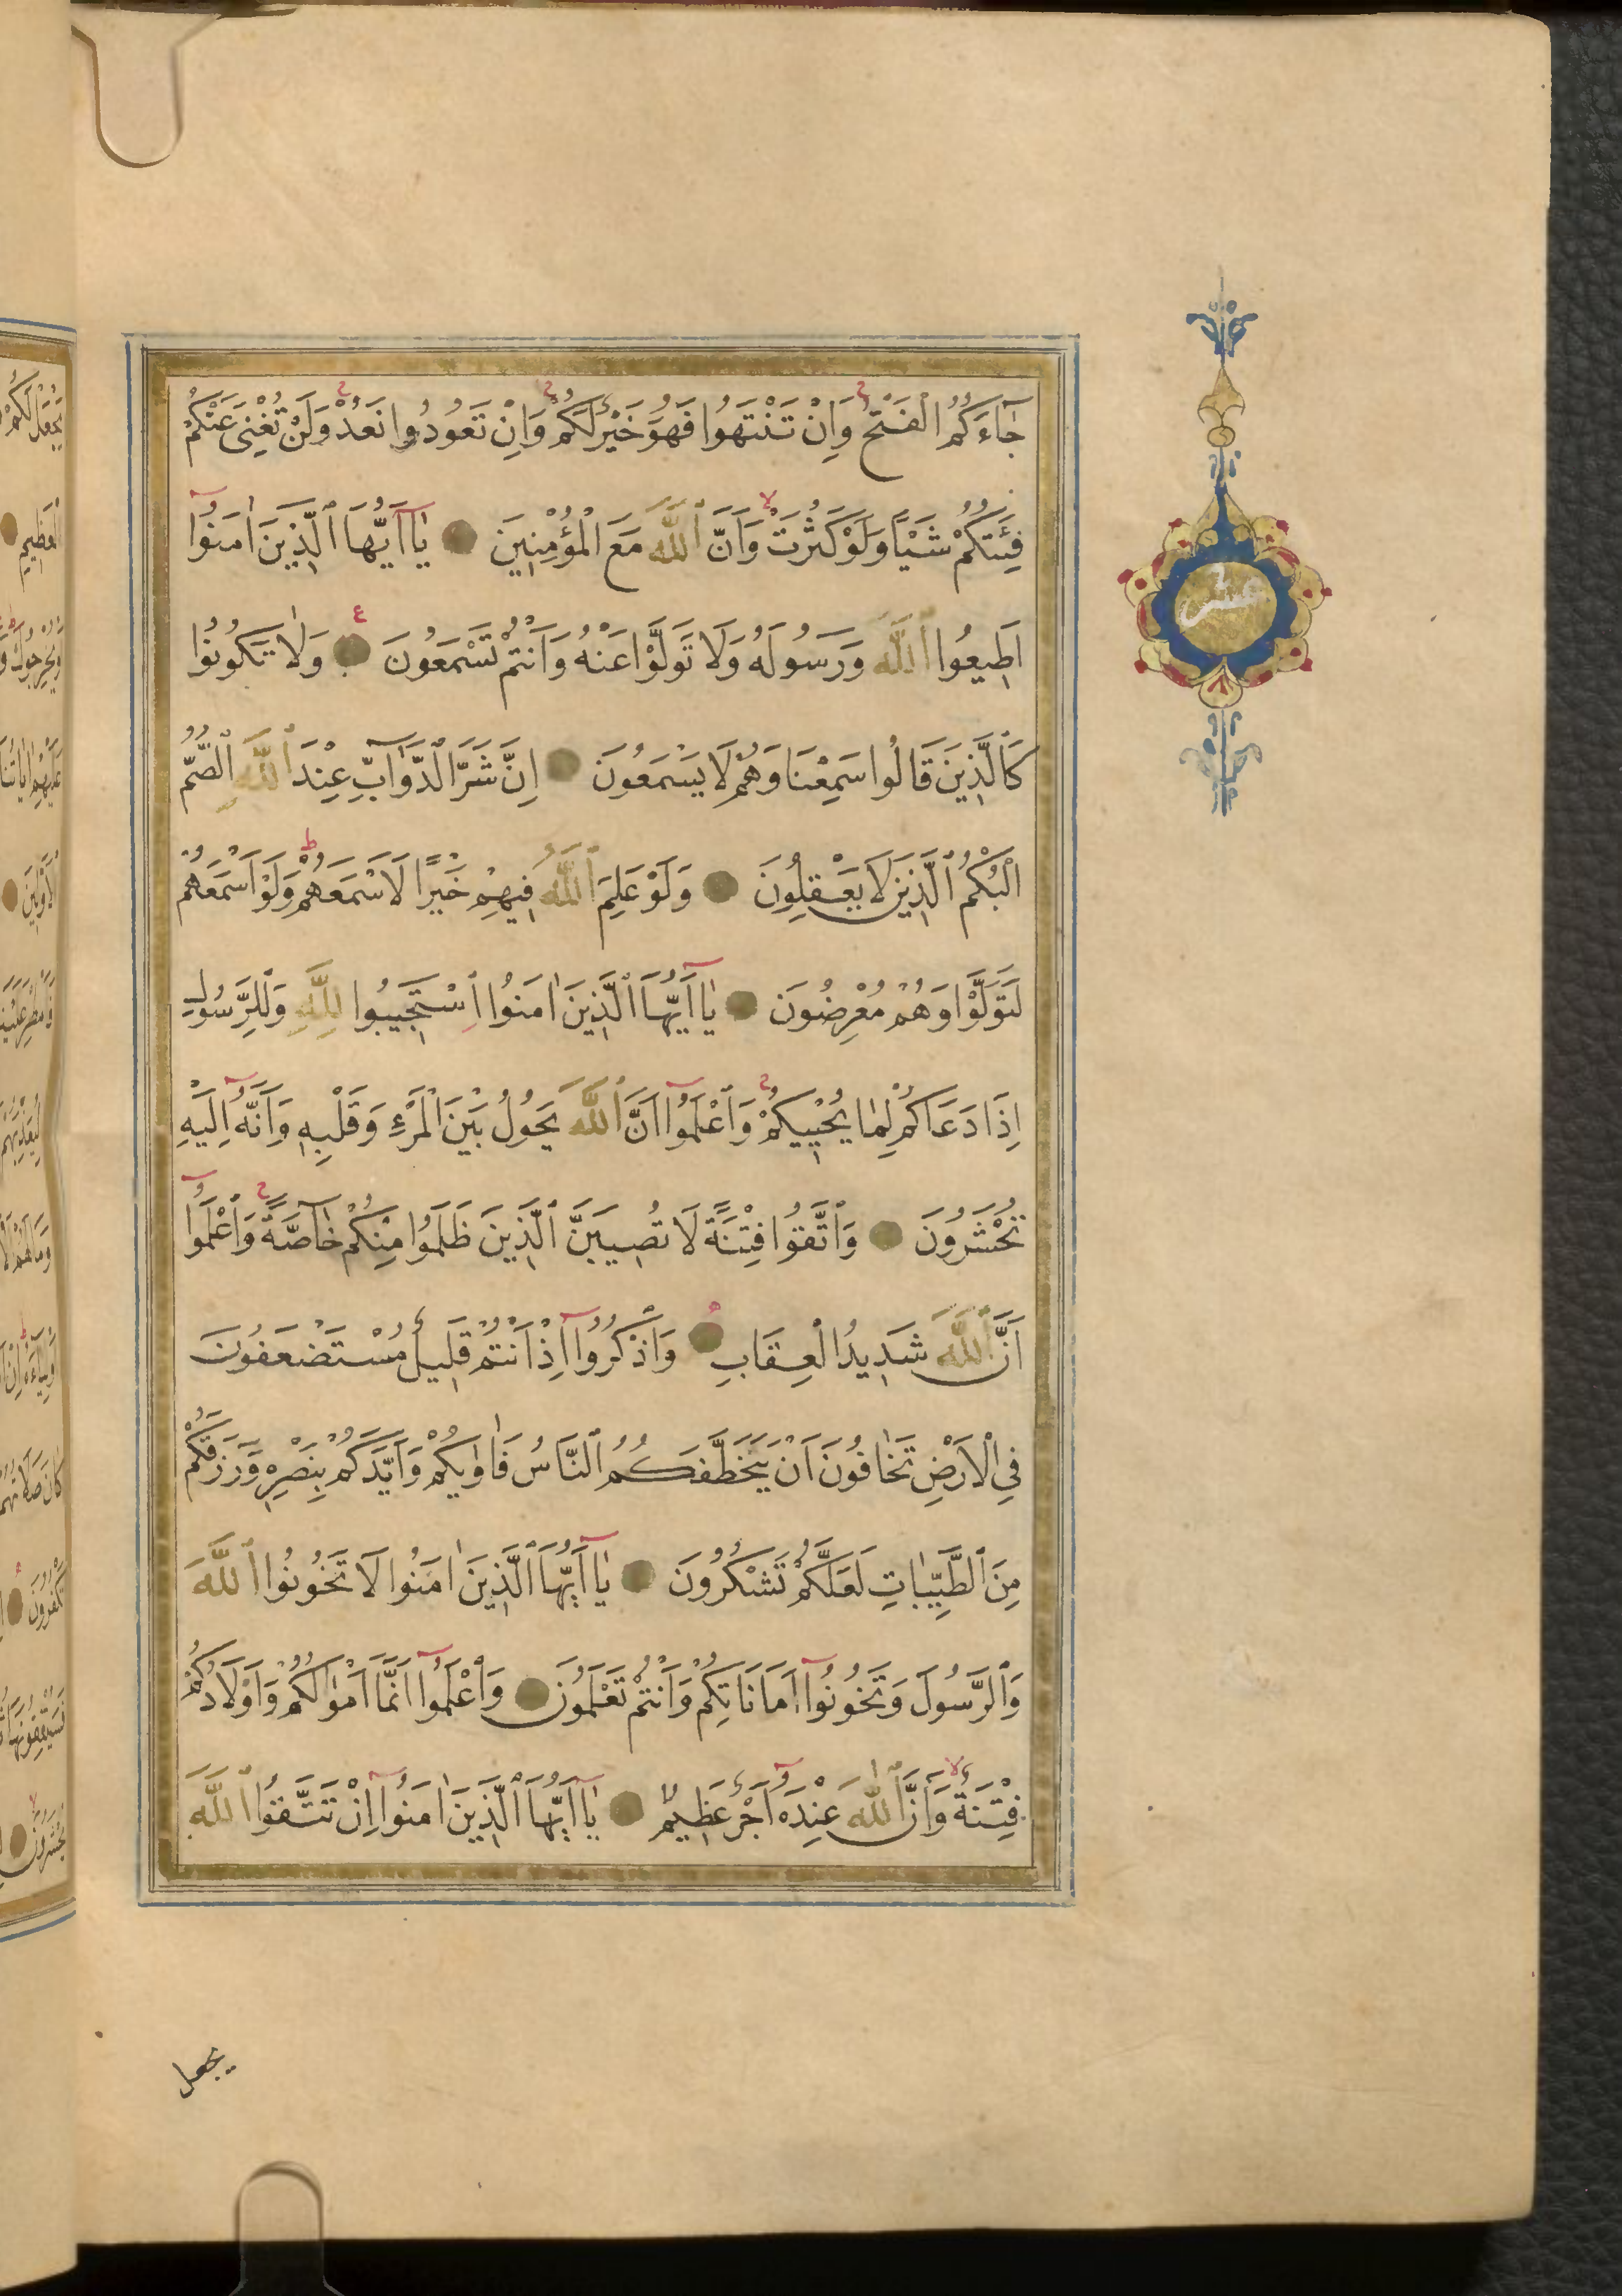 جَاءَكُمُ الْفَتْحُ وَاِنْ تَنْتَهُوا فَهُوَ خَيْرٌ لَكُمْ وَاِنْ تَعُودُوا نَعُدْ وَلَنْ تُغْنِىَ عَنْكُمْ
فِئَتُكُمْ شَيْئًا وَلَوْ كَثُرَتْ وَاَنَّ اللّٰهَ مَعَ الْمُؤْمِنِينَ يَا اَيُّهَا الَّذِينَ اٰمَنُوا
اَطِيعُوا اللّٰهَ وَرَسُولَهُ وَلَا تَوَلَّوْا عَنْهُ وَاَنْتُمْ تَسْمَعُونَ وَلَا تَكُونُوا
كَالَّذِينَ قَالُوا سَمِعْنَا وَهُمْ لَا يَسْمَعُونَ اِنَّ شَرَّ الدَّوَابِّ عِنْدَ اللّٰهِ الصُّمُّ
الْبُكْمُ الَّذِينَ لَا يَعْقِلُونَ وَلَوْ عَلِمَ اللّٰهُ فِيهِمْ خَيْرًا لَاَسْمَعَهُمْ وَلَوْ اَسْمَعَهُمْ
لَتَوَلَّوْا وَهُمْ مُعْرِضُونَ يَا اَيُّهَا الَّذِينَ اٰمَنُوا اسْتَجِيبُوا لِلّٰهِ وَلِلرَّسُولِ
اِذَا دَعَاكُمْ لِمَا يُحْيِيكُمْ وَاعْلَمُوا اَنَّ اللّٰهَ يَحُولُ بَيْنَ الْمَرْءِ وَقَلْبِهِ وَاَنَّهُ اِلَيْهِ
تُحْشَرُونَ وَاتَّقُوا فِتْنَةً لَا تُصِيبَنَّ الَّذِينَ ظَلَمُوا مِنْكُمْ خَاصَّةً وَاعْلَمُوا
اَنَّ اللّٰهَ شَدِيدُ الْعِقَابِ وَاذْكُرُوا اِذْ اَنْتُمْ قَلِيلٌ مُسْتَضْعَفُونَ
فِى الْاَرْضِ تَخَافُونَ اَنْ يَتَخَطَّفَكُمُ النَّاسُ فَاٰوٰيكُمْ وَاَيَّدَكُمْ بِنَصْرِهِ وَرَزَقَكُمْ
مِنَ الطَّيِّبَاتِ لَعَلَّكُمْ تَشْكُرُونَ يَا اَيُّهَا الَّذِينَ اٰمَنُوا لَا تَخُونُوا اللّٰهَ
وَالرَّسُولَ وَتَخُونُوا اَمَانَاتِكُمْ وَاَنْتُمْ تَعْلَمُونَ وَاعْلَمُوا اَنَّمَا اَمْوَالُكُمْ وَاَوْلَادُكُمْ
فِتْنَةٌ وَاَنَّ اللّٰهَ عِنْدَهُ اَجْرٌ عَظِيمٌ يَا اَيُّهَا الَّذِينَ اٰمَنُوا اِنْ تَتَّقُوا اللّٰهَ
يجعل
عشر